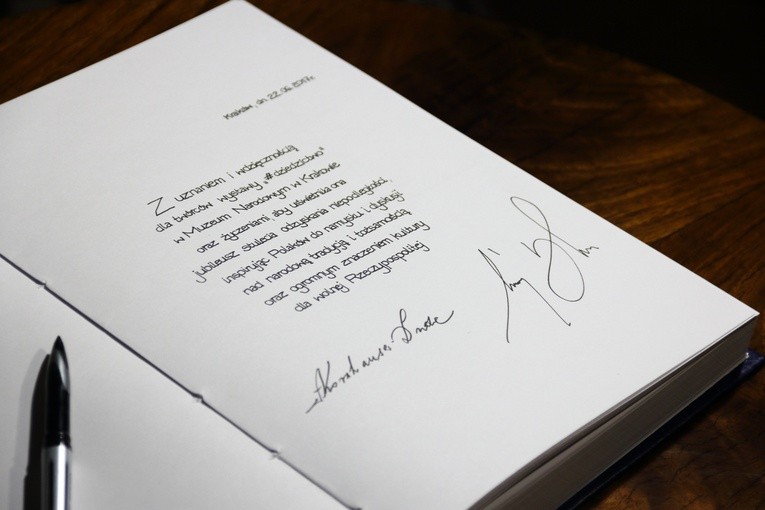 Kraków, dn. 22.06.2017r.
Z uznaniem i wdzięcznością
dla twórców wystawy „#dziedzictwo"
w Muzeum Narodowym w Krakowie
oraz życzeniami, aby uświetniła ona
jubileusz stulecia odzyskania niepodległości,
inspirując Polaków do namysłu i dyskusji
nad narodową tradycją i tożsamością
oraz ogromnym znaczeniem kultury
dla wolnej Rzeczypospolitej